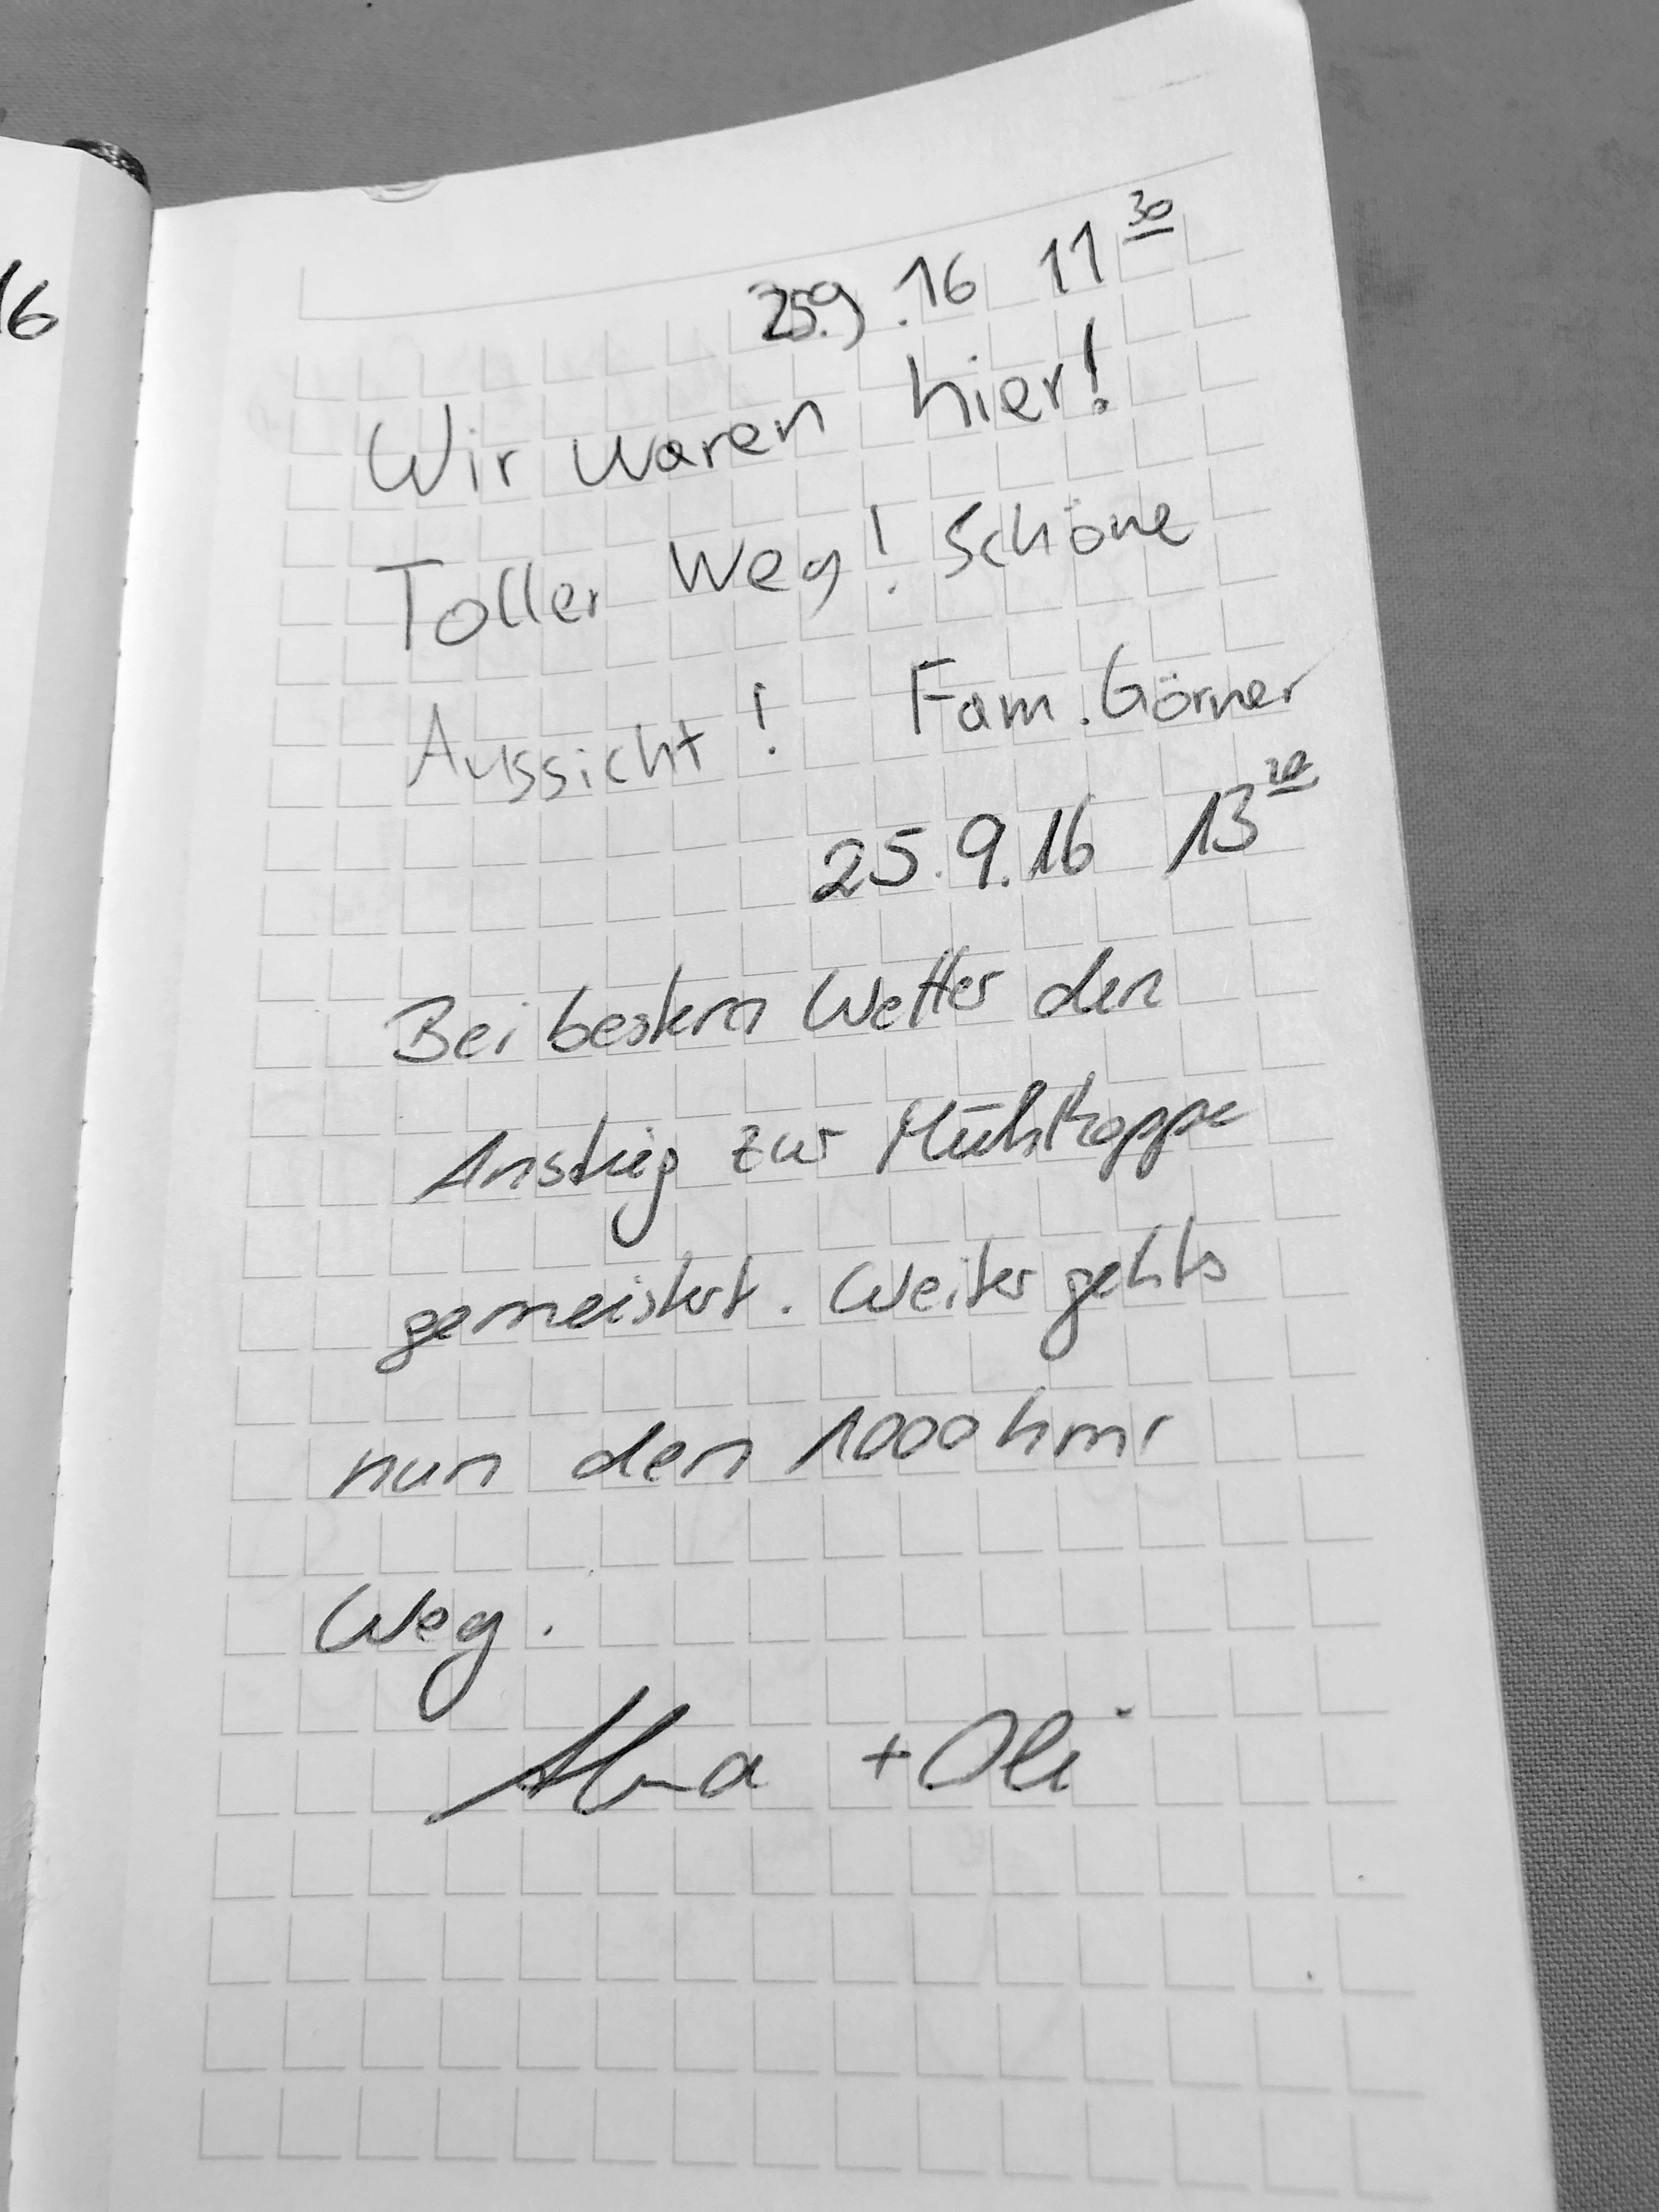 16
25.9.16 11 30
Wir waren hier!
Toller Weg! Schöne
Aussicht! Fam. Görner
25.9.16 13
Bei bestem Wetter den
Anstieg zur
gemeistert. Weiter gehts
nun den 1000 hm
Weg.
+ Oli